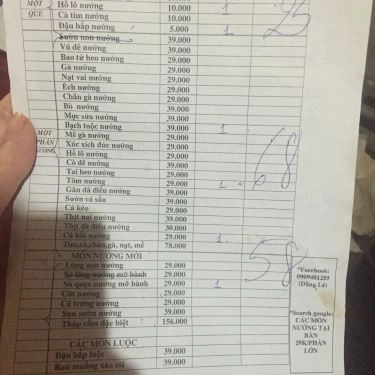 MỘT QUE
Hồ lô nướng 10.000 1
Cà tím nướng 10.000
Đậu bắp nướng 5.000 1
Sườn non nướng 39.000
Vú dê nướng 39.000
Bao tử heo nướng 29.000
Gà nướng 29.000
Nạt vai nướng 29.000
Ếch nướng 29.000
Chân gà nướng 29.000
Bò nướng 39.000
Mực sữa nướng 39.000
Bạch tuộc nướng 39.000 1
MỘT PHẦN NƯỚNG
Mề gà nướng 29.000
Xúc xích đức nướng 29.000
Hồ lô nướng 29.000
Cò dê nướng 39.000
68
Tai heo nướng 29.000
Tôm nướng 29.000 1
Gân đà điểu nướng 39.000
Sườn cá sấu 39.000
Cá kèo 29.000
Thịt nai nướng 39.000
Thịt đà điểu nướng 39.000
Cá hồi nướng 29.000 1
Tim,cò,chân,gà, nạt, mề 78.000
58
MÓN NƯỚNG MỚI
Lòng non nướng 29.000
Sò lông nướng mỡ hành 29.000
Sò quẹo nướng mỡ hành 29.000 1
Cút nướng 29.000
Cá trứng nướng 29.000
Sụn sườn nướng 39.000
Thập cẩm đặc biệt 156.000
CÁC MÓN LUỘC
Đậu bắp luộc 39.000
Rau muống xào tỏi 39.000
*Facebook:
0909481285
(Dâng Lê)
*Search google:
CÁC MÓN
NƯỚNG TẠI
BÀN
29K/PHẦN
LỚN